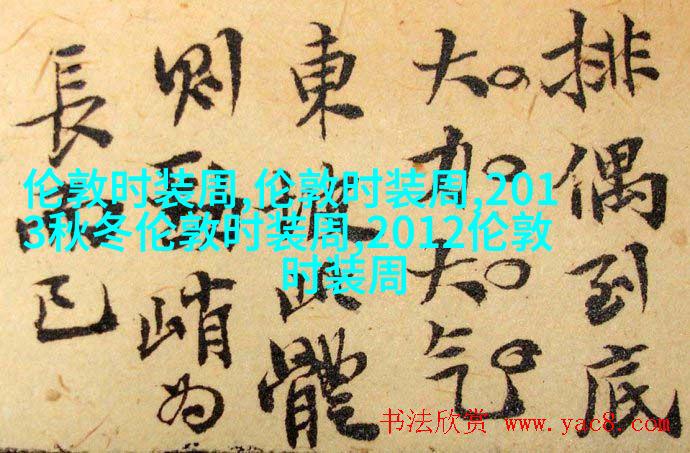 排偶到底
大大气
東此體
則峭為
長已
伦敦时装周,伦敦时装周,201
3秋冬伦敦时装周,2012伦敦
时装周
书法欣赏 www.yac8.com